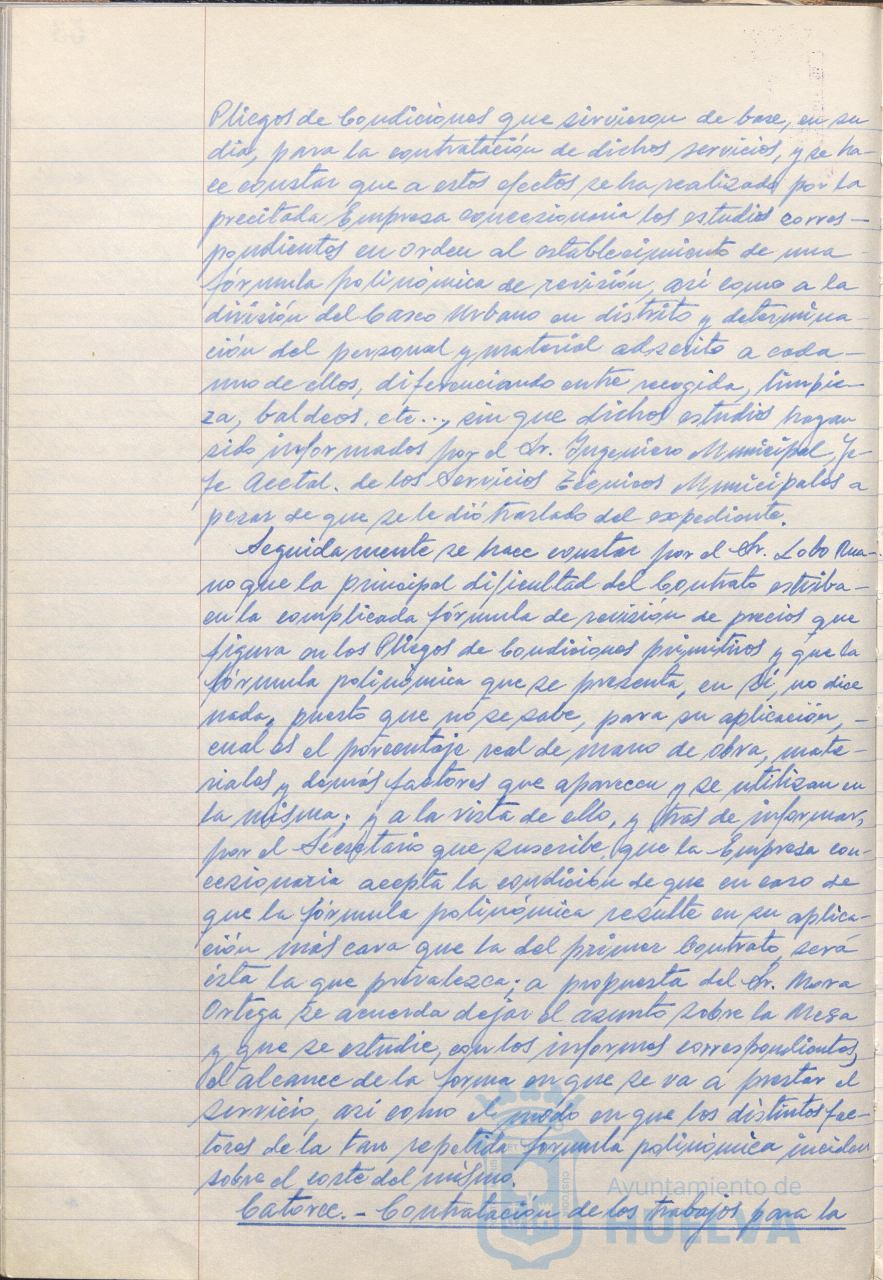 Pliegos de Condiciones que sirvieron de base, en su
dia, para la contratación de dichos servicios, y se ha-
ce constar que a estos efectos se ha realizado por la
precitada Empresa concesionaria los estudios corres-
pondientes en orden al establecimiento de una
fórmula polinómica de revisión, así como a la
división del Casco Urbano en distrito y determina-
ción del personal y material adscrito a cada
uno de ellos, diferenciando entre recogida, limpie-
za, baldeos, etc..., sin que dichos estudios hayan
sido informados por el Sr. Ingeniero Municipal, Je-
fe Acctal. de los Servicios Técnicos Municipales a
pesar de que se le dió traslado del expediente.
Seguidamente se hace constar por el Sr. Lobo Rua-
no que la principal dificultad del Contrato estriba
en la complicada fórmula de revisión de precios que
figura en los Pliegos de Condiciones primitivos y que la
fórmula polinómica que se presenta, en sí, no dice
nada, puesto que no se sabe, para su aplicación,
cual es el porcentaje real de mano de obra, mate-
riales y demás factores que aparecen y se utilizan en
la misma; y a la vista de ello, y tras de informar,
por el Secretario que suscribe, que la Empresa con-
cesionaria acepta la condición de que en caso de
que la fórmula polinómica resulte en su aplica-
ción más cara que la del primer Contrato, será
ésta la que prevalezca; a propuesta del Sr. Mora
Ortega se acuerda dejar el asunto sobre la Mesa
y que se estudie, con los informes correspondientes,
el alcance de la forma en que se va a prestar el
servicio, así como el modo en que los distintos fac-
tores de la tan repetida fórmula polinómica inciden
sobre el coste del mismo.
Catorce.- Contratación de los trabajos para la
Ayuntamiento de
HUELVA